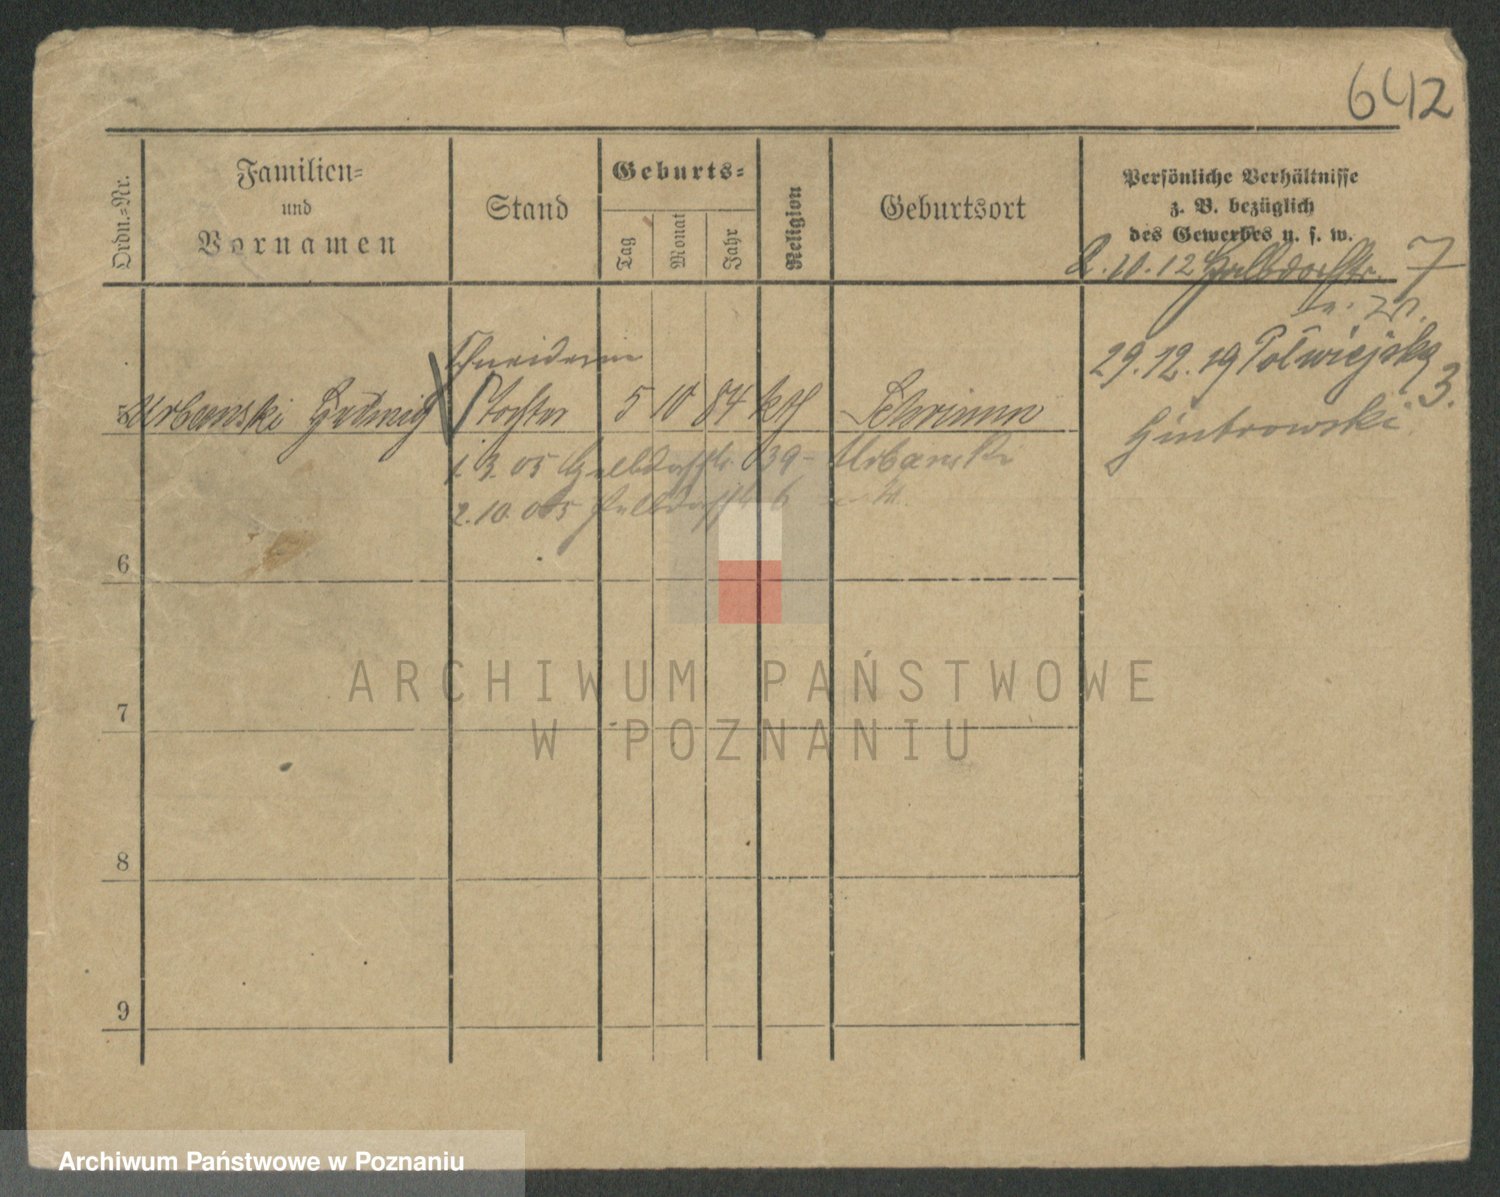 642
Ordn.=Nr.
Familien=
und
Vornamen
Stand
Geburts=
Tag
Monat
Jahr
Religion
Geburtsort
Persönliche Verhältnisse
z. B. bezüglich
des Gewerbes u. s. w.
2.10.12 Halbdorfstr. 7
29.12.19 Połwiejska
3.
Schneiderin
5 Urbanski Hedwig Tochter 5 10 84 kth
1.3.05 Halbdorfstr. 39 - Urbanski
2.10.05 Halbdorfstr 6
6
7
8
9
ARCHIWUM PAŃSTWOWE
W POZNANIU
Archiwum Państwowe w Poznaniu